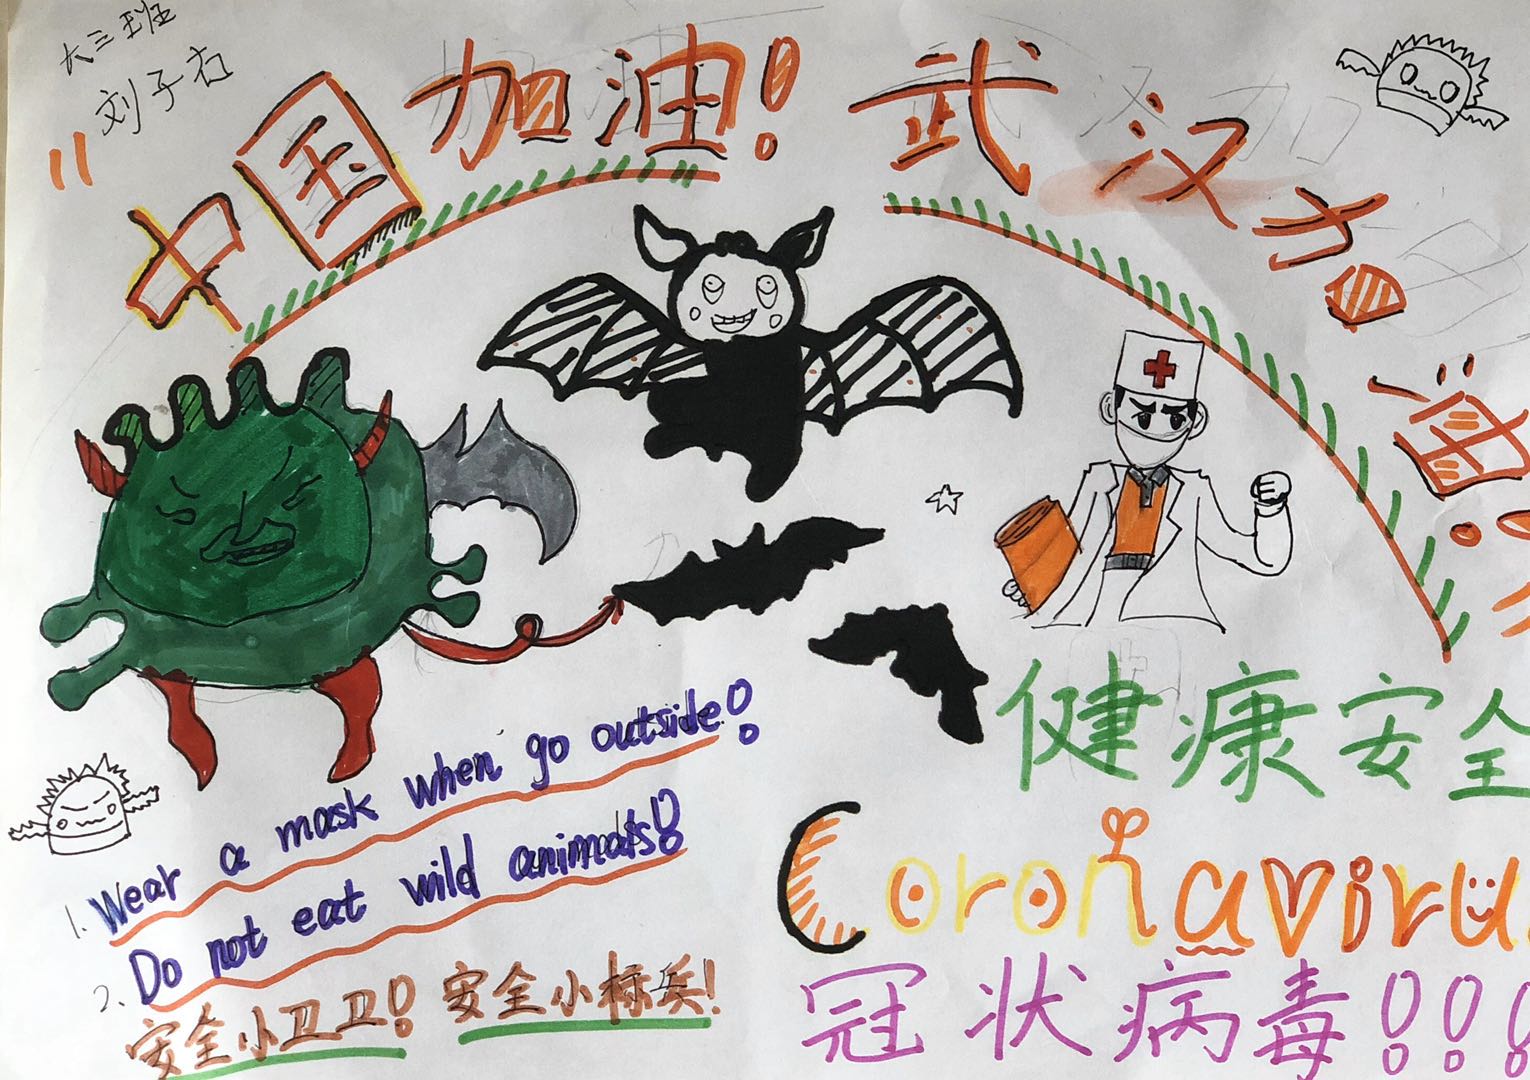 大三班
刘子右
"中国加油！武汉加油！
健康安全
Coronaviru
冠状病毒!!!
1. Wear a mask when go outside!
2. Do not eat wild animals!
安全小卫卫! 安全小标兵!